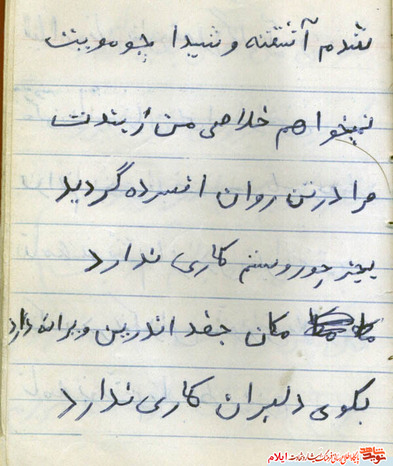 شدم آشفته و شیدا چو مویت
نمیخواهم خلاصی من ز بندت
مرا در تن روان افسرده گردید
بجز جور و ستم کاری ندارد
مکان جغد اندرین ویرانه دارد
بکوی دلبران کاری ندارد
نوید شاهد
پایگاه اطلاع رسانی فرهنگ ایثار و شهادت ایلام